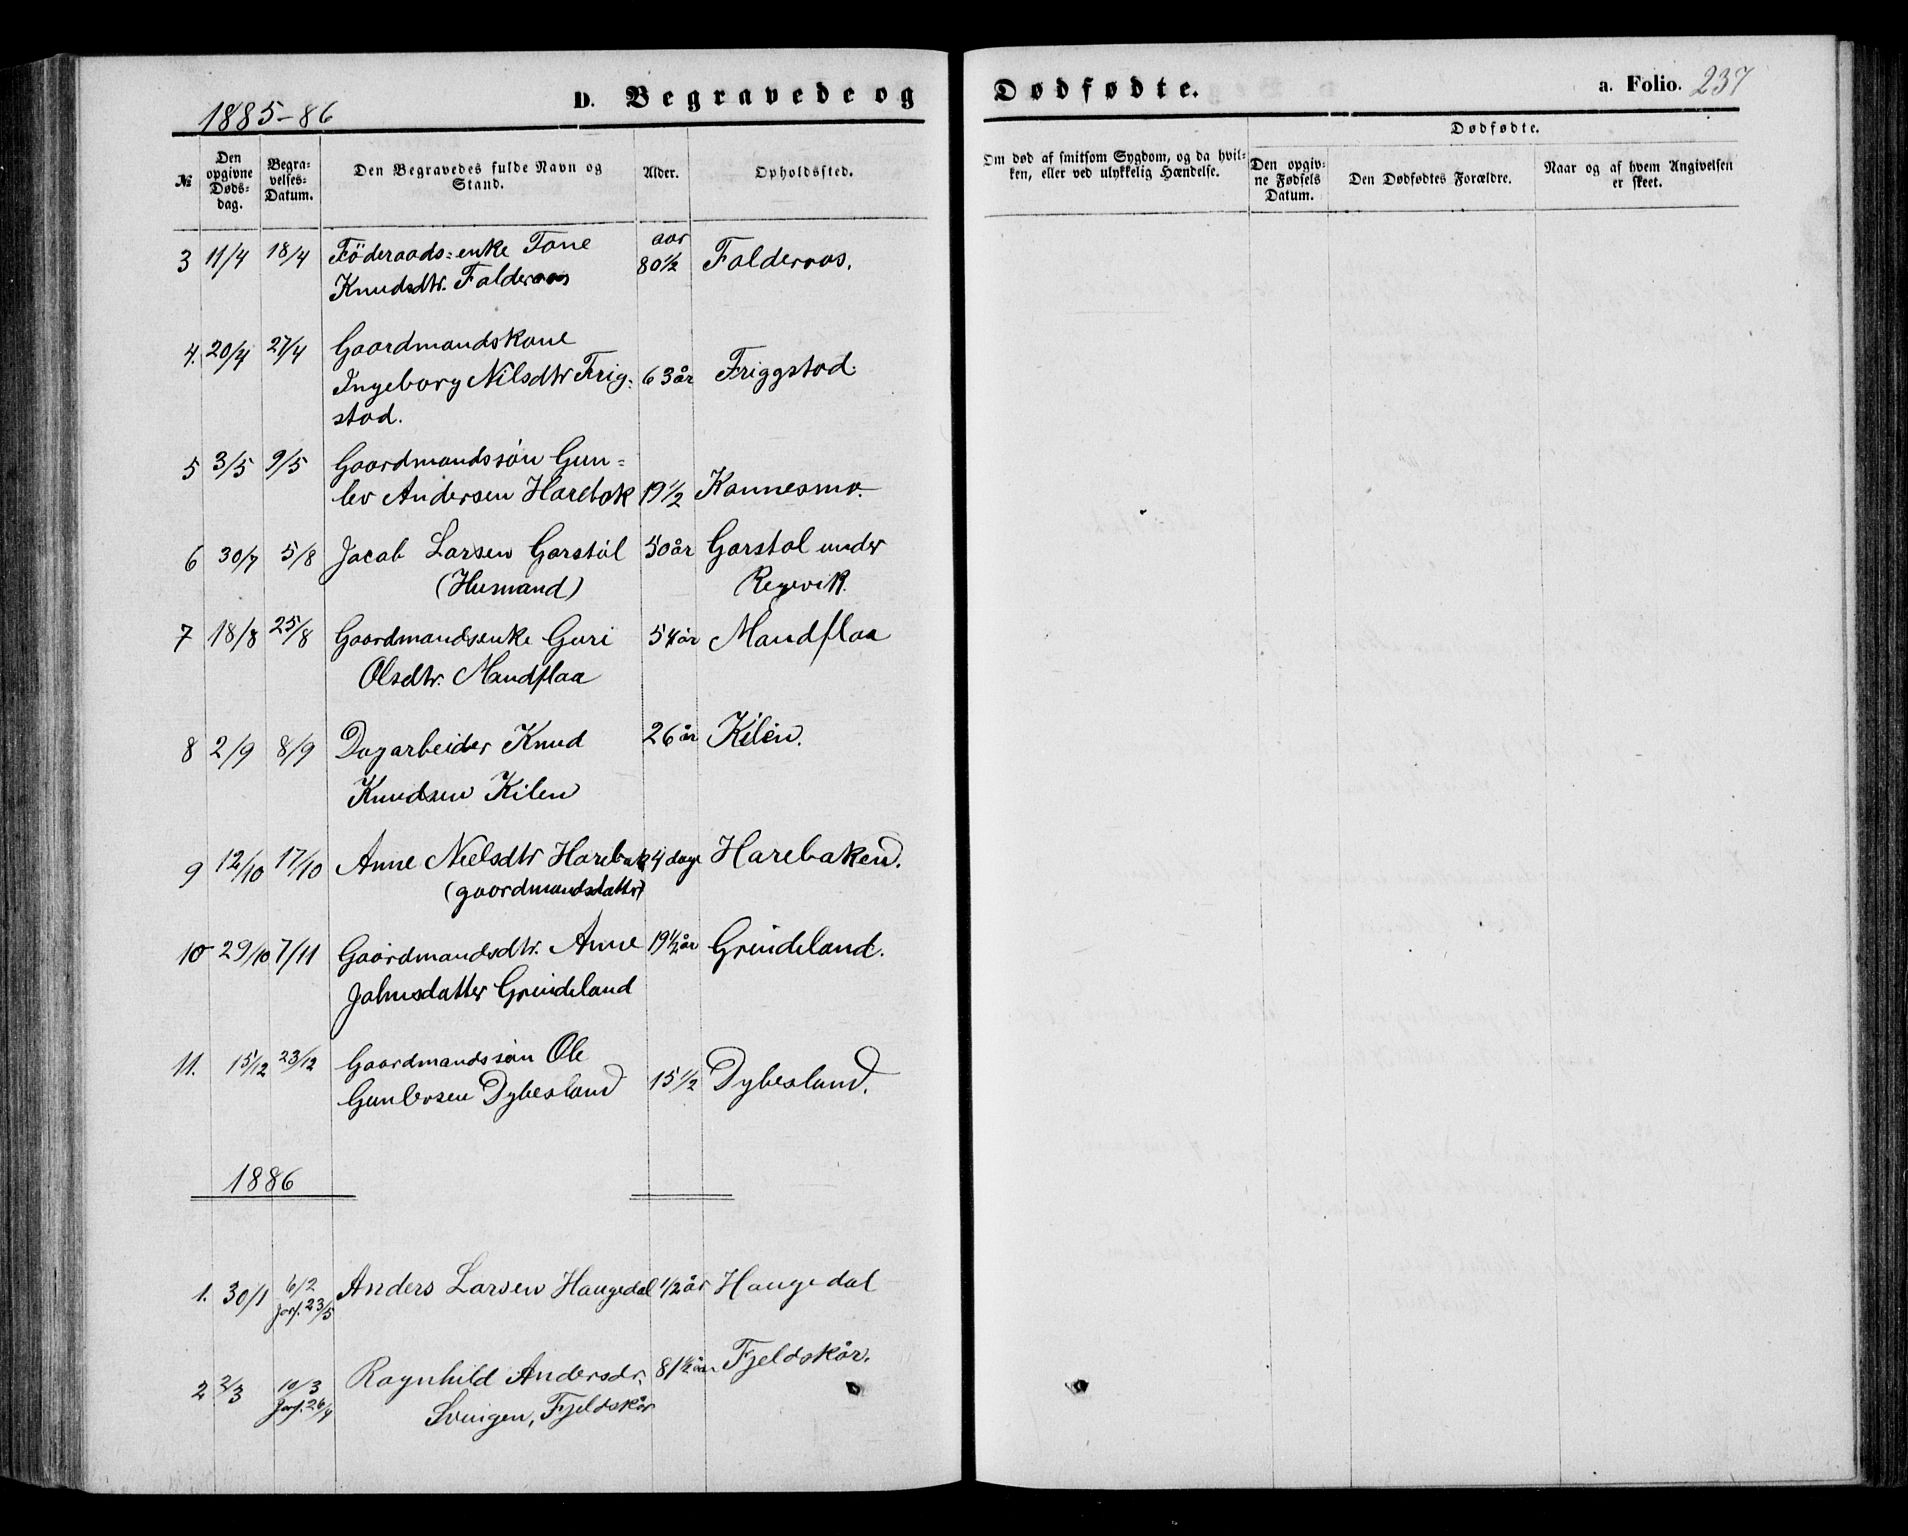 1885-86
D. Begravede og Dødfødte.
a. Folio. 237
№ | Den opgivne Døds-dag. | Begra-velses-Datum. | Den Begravedes fulde Navn og Stand. | Alder. | Opholdssted.
Om død af smitsom Sygdom, og da hvil-ken, eller ved ulykkelig Hændelse. | Dødfødte. | Den opgiv-ne Fødsels Datum. | Den Dødfødtes Forældre. | Naar og af hvem Angivelsen er skeet.
3 11/4 18/4 Föderaads=enke Tone aar
Knudsdtr. Falderaas 80½ Falderaas.
4. 20/4 27/4 Gaardmandskone
Ingeborg Nilsdtr Frig= 63 år Friggstad.
stad.
5 3/5 9/5 Gaardmandssøn Gun=
lev Andersen Harebak 19½ Kannesmo.
6 30/7 5/8 Jacob Larsen Garstøl 50 år Garstøl under
(Husmand) Regevik.
7 18/8 25/8 Gaardmandsenke Guri 54 år Mandflaa
Olsdtr. Mandflaa
8 2/9 8/9 Dagarbeider Knud 26 år Kilen.
Knudsen Kilen
9 12/10 17/10 Anne Nielsdtr Harebak 4 dage Harebaken.
(gaardmandsdatter)
10 29/10 7/11 Gaardmandsdtr. Anne 19½ år Grindeland.
Jahnsdatter Grindeland
11. 15/12 23/12 Gaardmandssøn Ole
Gunlevsen Dybesland 15½ Dybesland.
1886
1. 30/1 6/2 Anders Larsen Haugedal ½ år Haugedal
Jorf. 23/5
2 2/3 10/3 Ragnhild Andersdr. 81½ år Fjeldskår.
Jorf. 26/4 Svingen, Fjeldskår